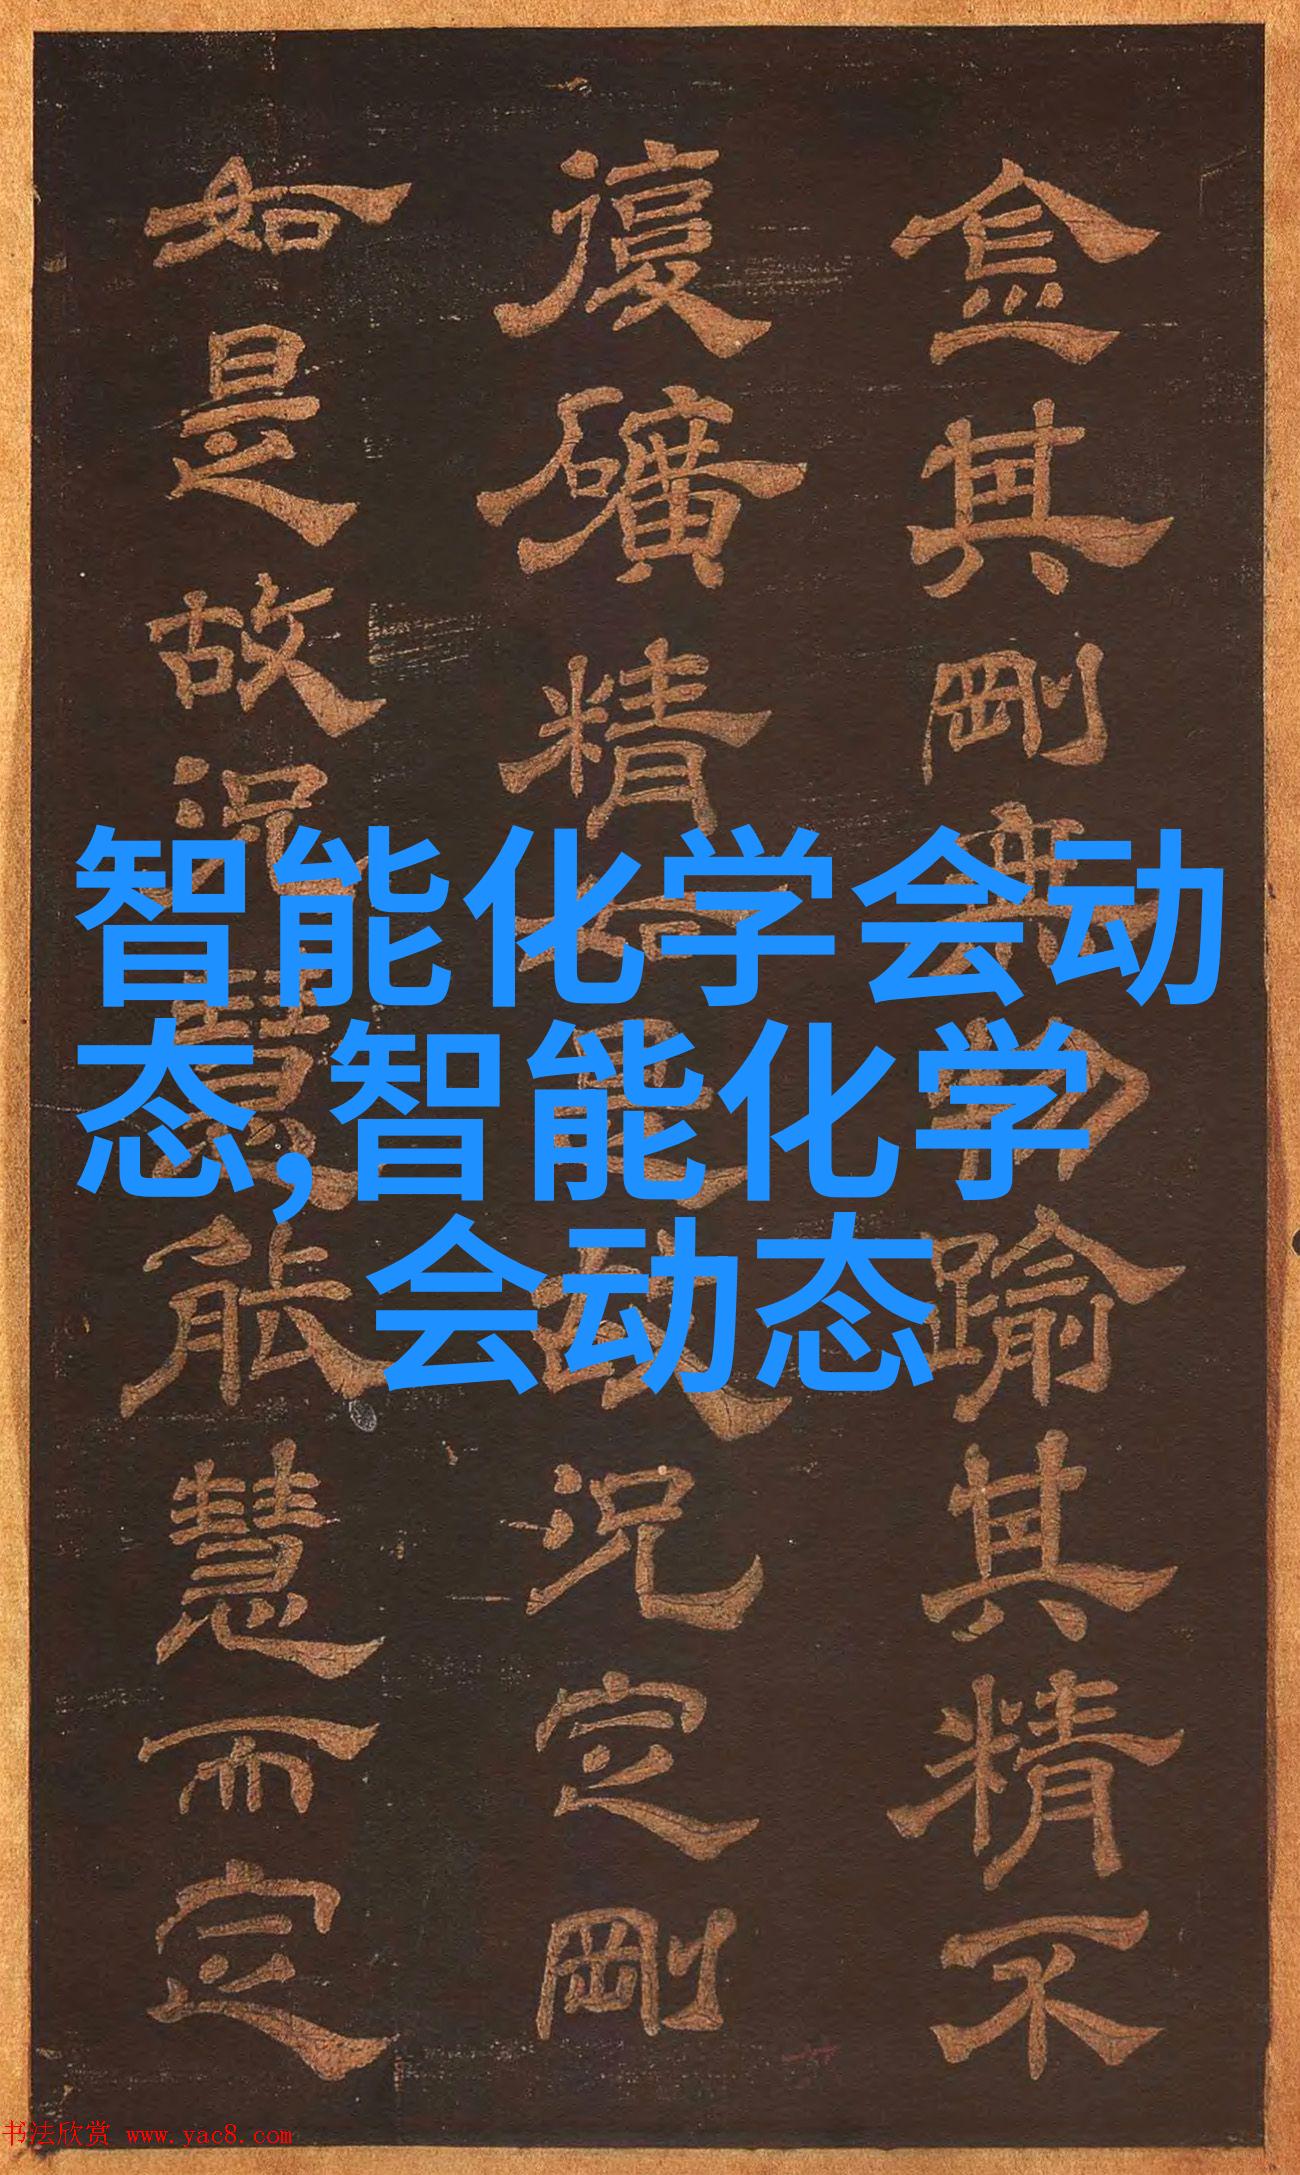 金其剛無物踰其精不
復礦精如是故況定剛
如是故況慧能慧而定
智能化学会动
态,智能化学
会动态
书法欣赏 www.yac8.com